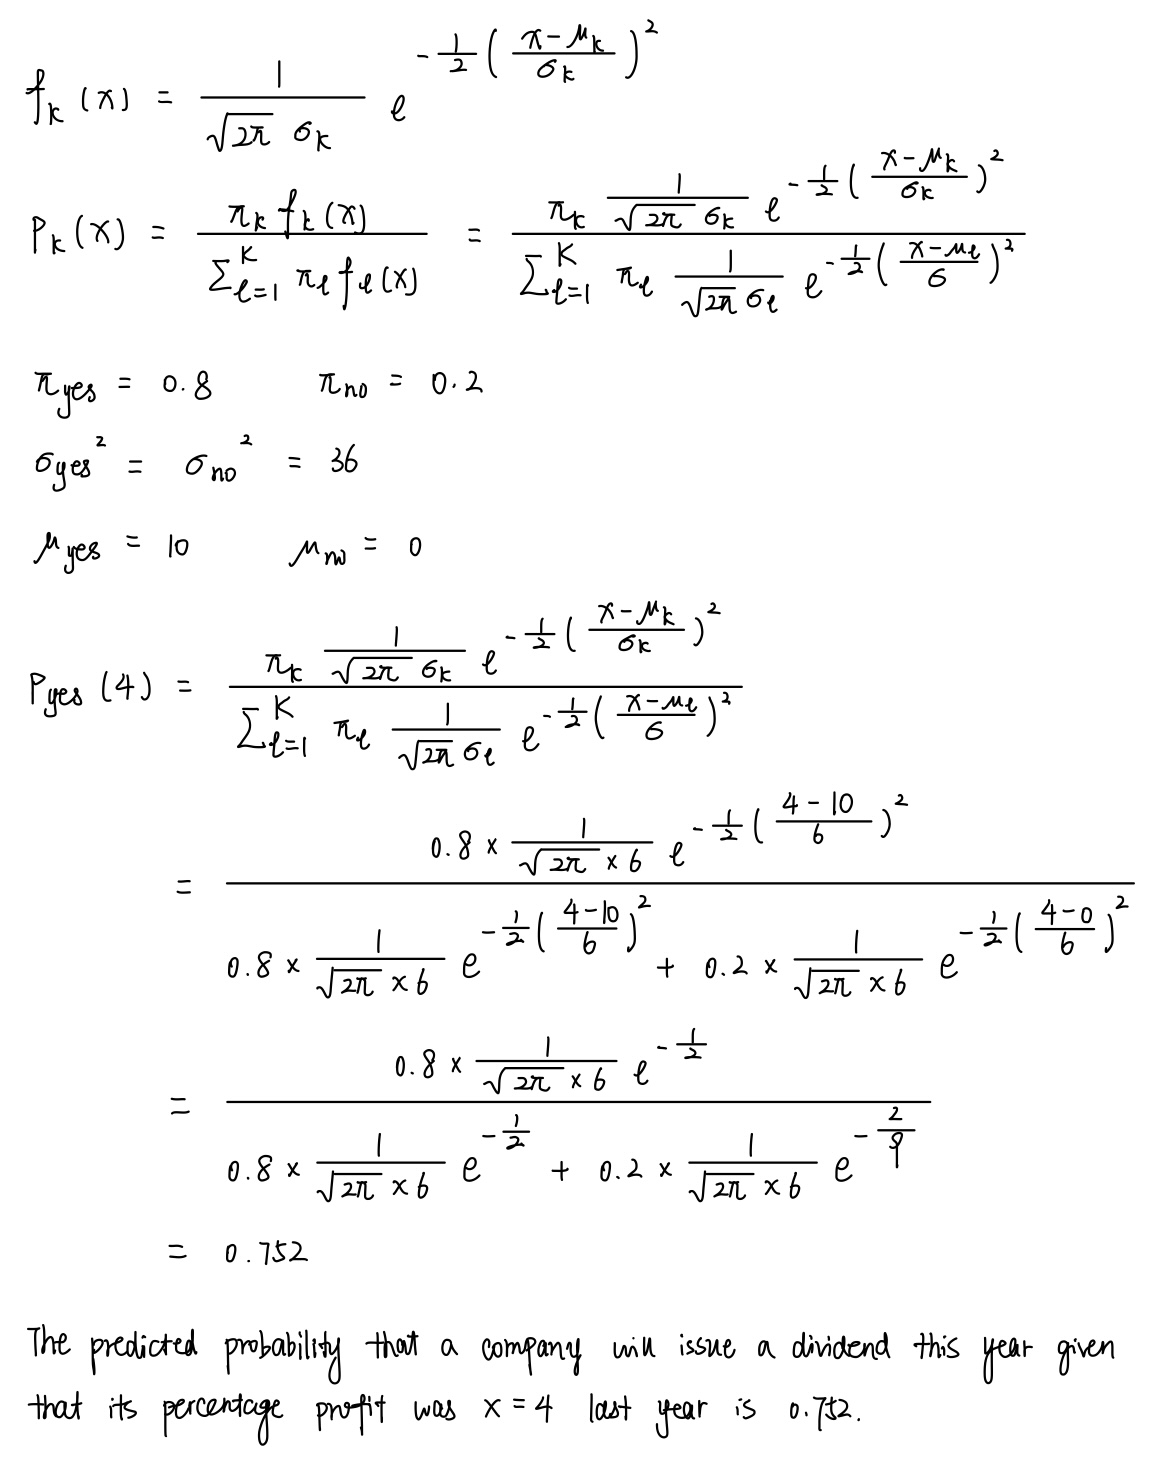 f_k (x) = \frac{1}{\sqrt{2π} σ_k} e^{-\frac{1}{2} (\frac{x-μ_k}{σ_k})^2}
P_k (x) = \frac{π_k f_k (x)}{\sum_{ℓ=1}^{K} π_ℓ f_ℓ (x)} = \frac{π_k \frac{1}{\sqrt{2π} σ_k} e^{-\frac{1}{2} (\frac{x-μ_k}{σ_k})^2}}{\sum_{ℓ=1}^{K} π_ℓ \frac{1}{\sqrt{2π} σ_ℓ} e^{-\frac{1}{2} (\frac{x-μ_ℓ}{σ})^2}}
π_{yes} = 0.8 π_{no} = 0.2
σ_{yes}^2 = σ_{no}^2 = 36
μ_{yes} = 10 μ_{no} = 0
P_{yes} (4) = \frac{π_k \frac{1}{\sqrt{2π} σ_k} e^{-\frac{1}{2} (\frac{x-μ_k}{σ_k})^2}}{\sum_{ℓ=1}^{K} π_ℓ \frac{1}{\sqrt{2π} σ_ℓ} e^{-\frac{1}{2} (\frac{x-μ_ℓ}{σ})^2}}
= \frac{0.8 × \frac{1}{\sqrt{2π} × 6} e^{-\frac{1}{2} (\frac{4-10}{6})^2}}{0.8 × \frac{1}{\sqrt{2π} × 6} e^{-\frac{1}{2} (\frac{4-10}{6})^2} + 0.2 × \frac{1}{\sqrt{2π} × 6} e^{-\frac{1}{2} (\frac{4-0}{6})^2}}
= \frac{0.8 × \frac{1}{\sqrt{2π} × 6} e^{-\frac{1}{2}}}{0.8 × \frac{1}{\sqrt{2π} × 6} e^{-\frac{1}{2}} + 0.2 × \frac{1}{\sqrt{2π} × 6} e^{-\frac{2}{9}}}
= 0.752
The predicted probability that a company will issue a dividend this year given
that its percentage profit was x = 4 last year is 0.752.